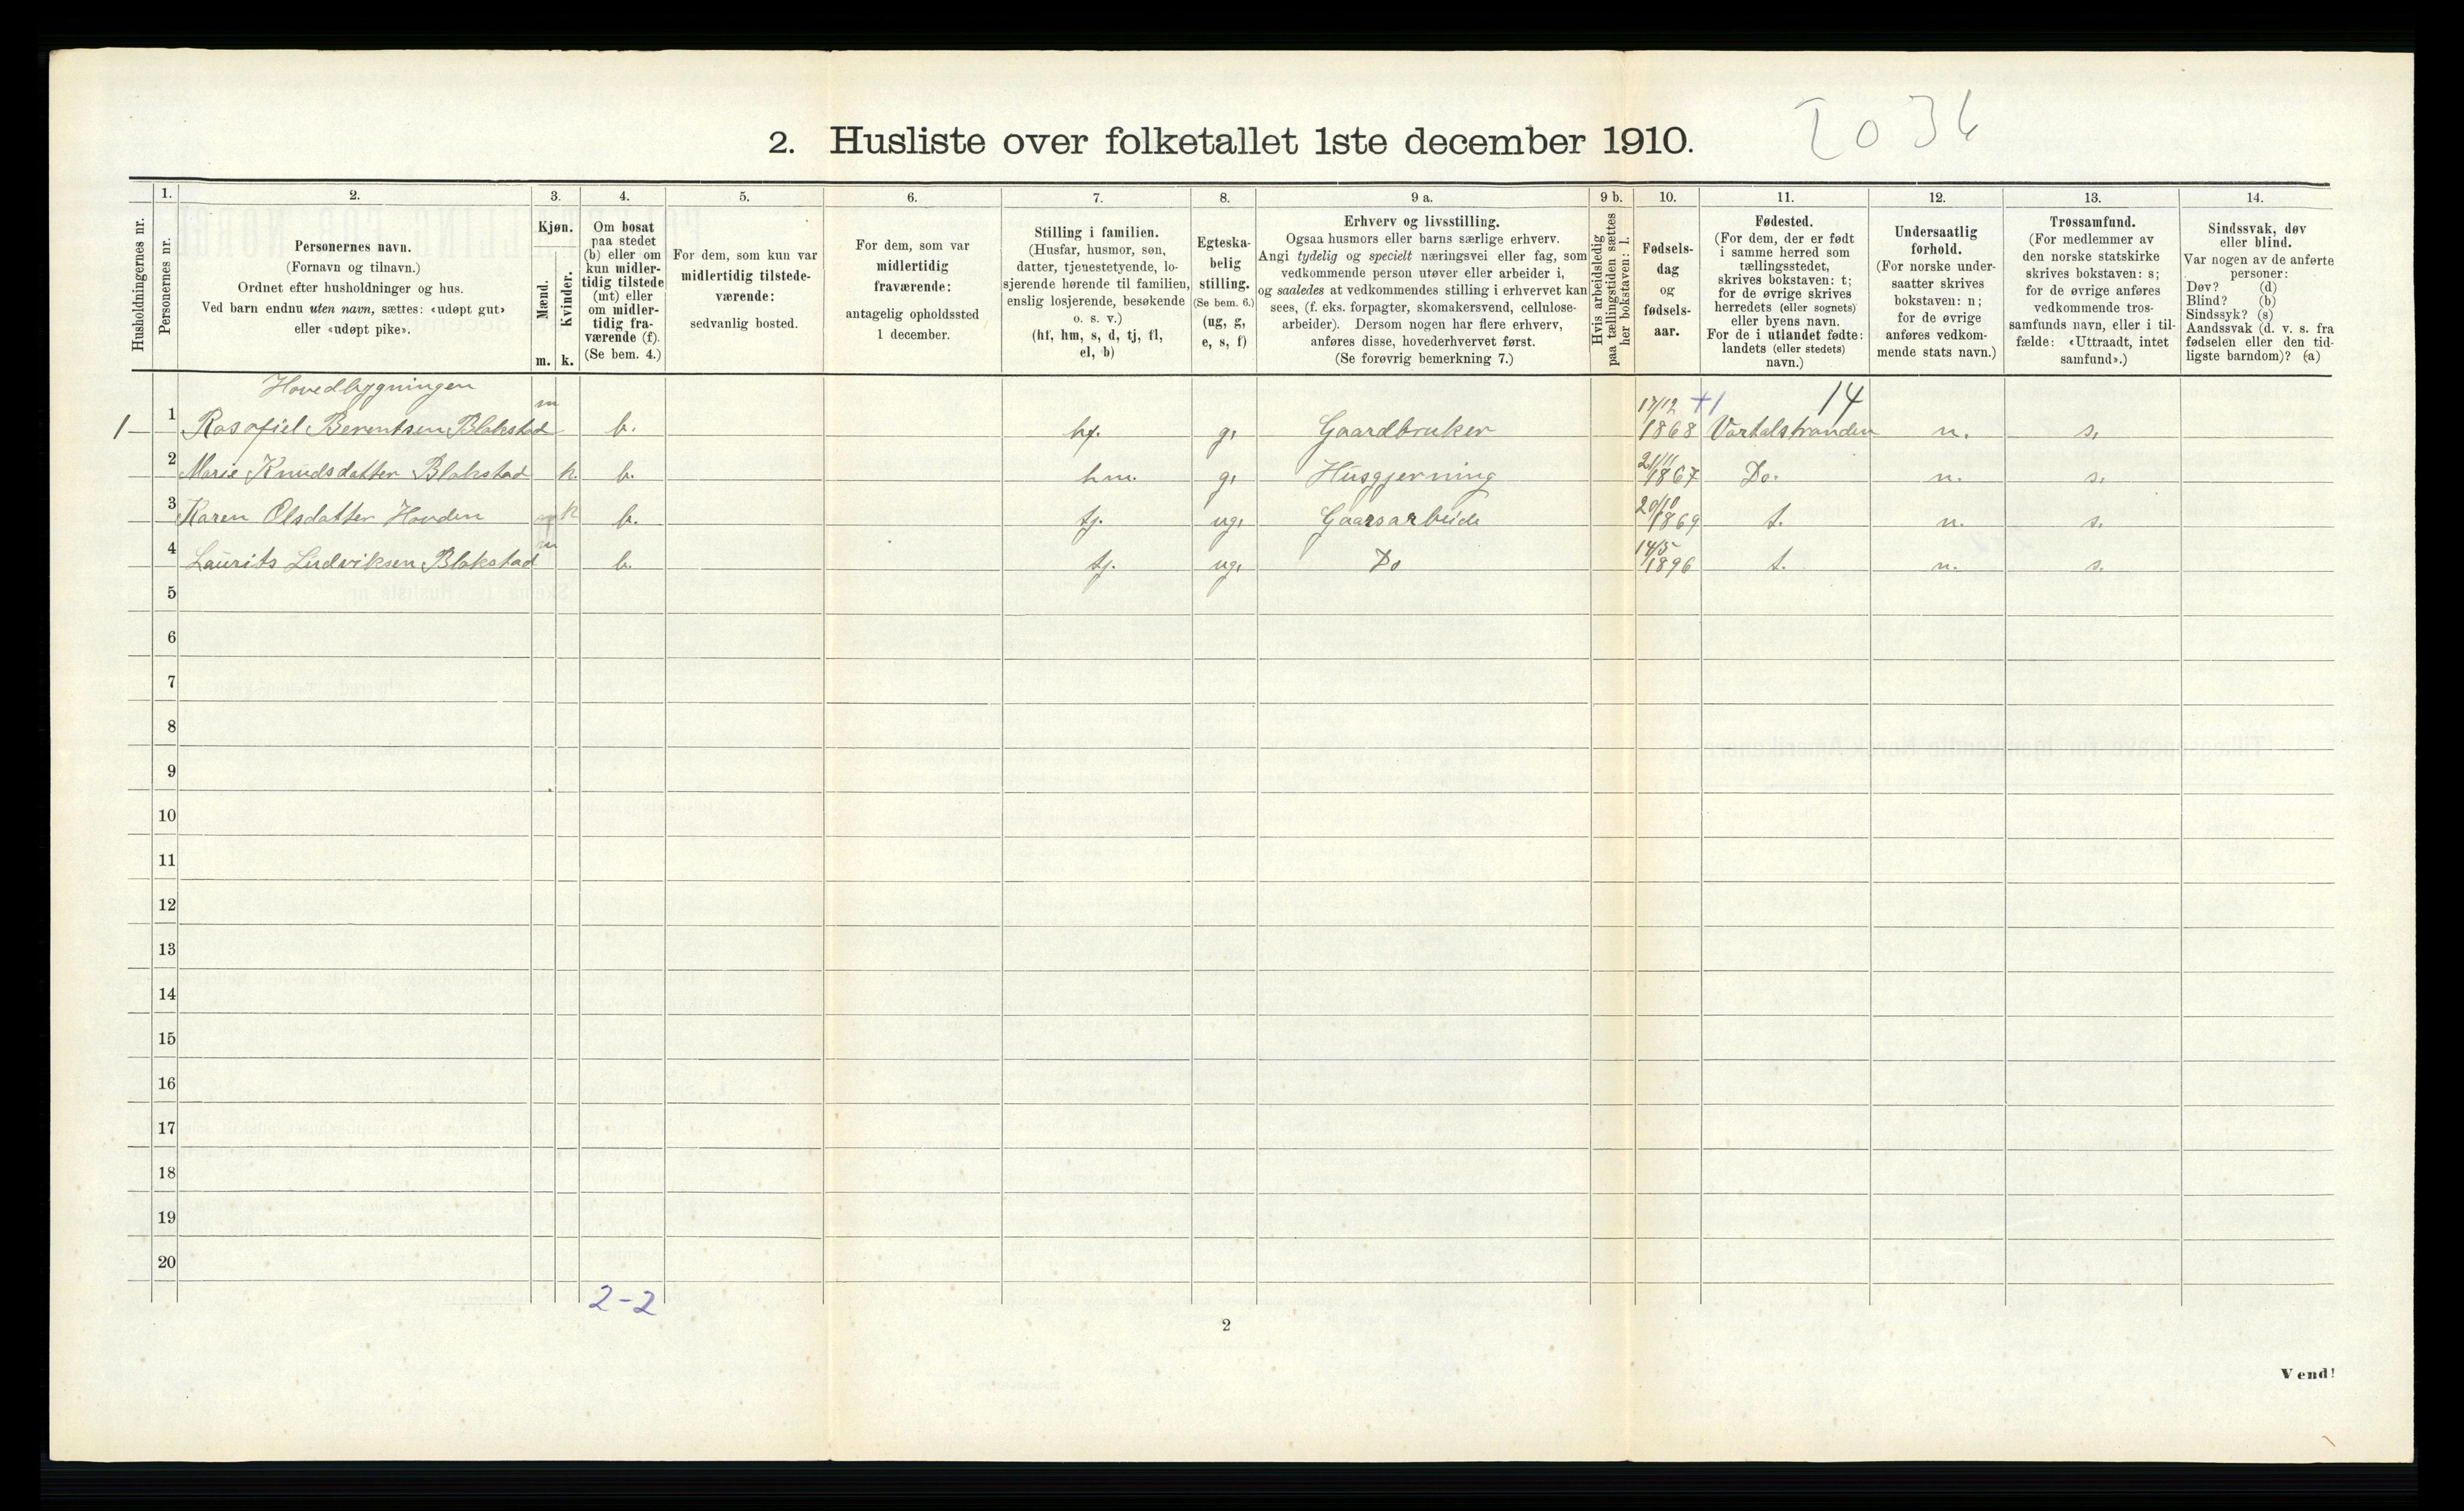 2. Husliste over folketallet 1ste december 1910.
2036
Husholdningernes nr.
1.
Personernes nr.
2.
Personernes navn.
(Fornavn og tilnavn.)
Ordnet efter husholdninger og hus.
Ved barn endnu uten navn, sættes: «udøpt gut»
eller «udøpt pike».
3.
Kjøn.
Mænd.
Kvinder.
m. k.
4.
Om bosat
paa stedet
(b) eller om
kun midler-
tidig tilstede
(mt) eller
om midler-
tidig fra-
værende (f).
(Se bem. 4.)
5.
For dem, som kun var
midlertidig tilstede-
værende:
sedvanlig bosted.
6.
For dem, som var
midlertidig
fraværende:
antagelig opholdssted
1 december.
7.
Stilling i familien.
(Husfar, husmor, søn,
datter, tjenestetyende, lo-
sjerende hørende til familien,
enslig losjerende, besøkende
o. s. v.)
(hf, hm, s, d, tj, fl,
el, b)
8.
Egteska-
belig
stilling.
(Se bem. 6.)
(ug, g,
e, s, f)
9 a.
Erhverv og livsstilling.
Ogsaa husmors eller barns særlige erhverv.
Angi tydelig og specielt næringsvei eller fag, som
vedkommende person utøver eller arbeider i,
og saaledes at vedkommendes stilling i erhvervet kan
sees, (f. eks. forpagter, skomakersvend, cellulose-
arbeider). Dersom nogen har flere erhverv,
anføres disse, hovederhvervet først.
(Se forøvrig bemerkning 7.)
9 b.
Hvis arbeidsledig
paa tællingstiden sættes
her bokstaven: l.
10.
Fødsels-
dag
og
fødsels-
aar.
11.
Fødested.
(For dem, der er født
i samme herred som
tællingsstedet,
skrives bokstaven: t;
for de øvrige skrives
herredets (eller sognets)
eller byens navn.
For de i utlandet fødte:
landets (eller stedets)
navn.)
12.
Undersaatlig
forhold.
(For norske under-
saatter skrives
bokstaven: n;
for de øvrige
anføres vedkom-
mende stats navn.)
13.
Trossamfund.
(For medlemmer av
den norske statskirke
skrives bokstaven: s;
for de øvrige anføres
vedkommende tros-
samfunds navn, eller i til-
fælde: «Uttraadt, intet
samfund».)
14.
Sindssvak, døv
eller blind.
Var nogen av de anførte
personer:
Døv? (d)
Blind? (b)
Sindssyk? (s)
Aandssvak (d. v. s. fra
fødselen eller den tid-
ligste barndom)? (a)
Hovedbygningen
14
1 1 Rasofiel Berentsen Blakstad m b. hf. g. Gaardbruker 17/12 1868 +1 Vartalstranden n. s.
2 Marie Knudsdatter Blakstad k. b. hm. g. Husgjerning 21/11 1867 Do. n. s.
3 Karen Olsdatter Hovden k b. tj. ug. Gaarsarbeide 20/10 1869 t. n. s.
4 Laurits Ludviksen Blakstad m b. tj. ug. Do 14/5 1896 t. n. s.
5
6
7
8
9
10
11
12
13
14
15
16
17
18
19
20
2-2
2
Vend!